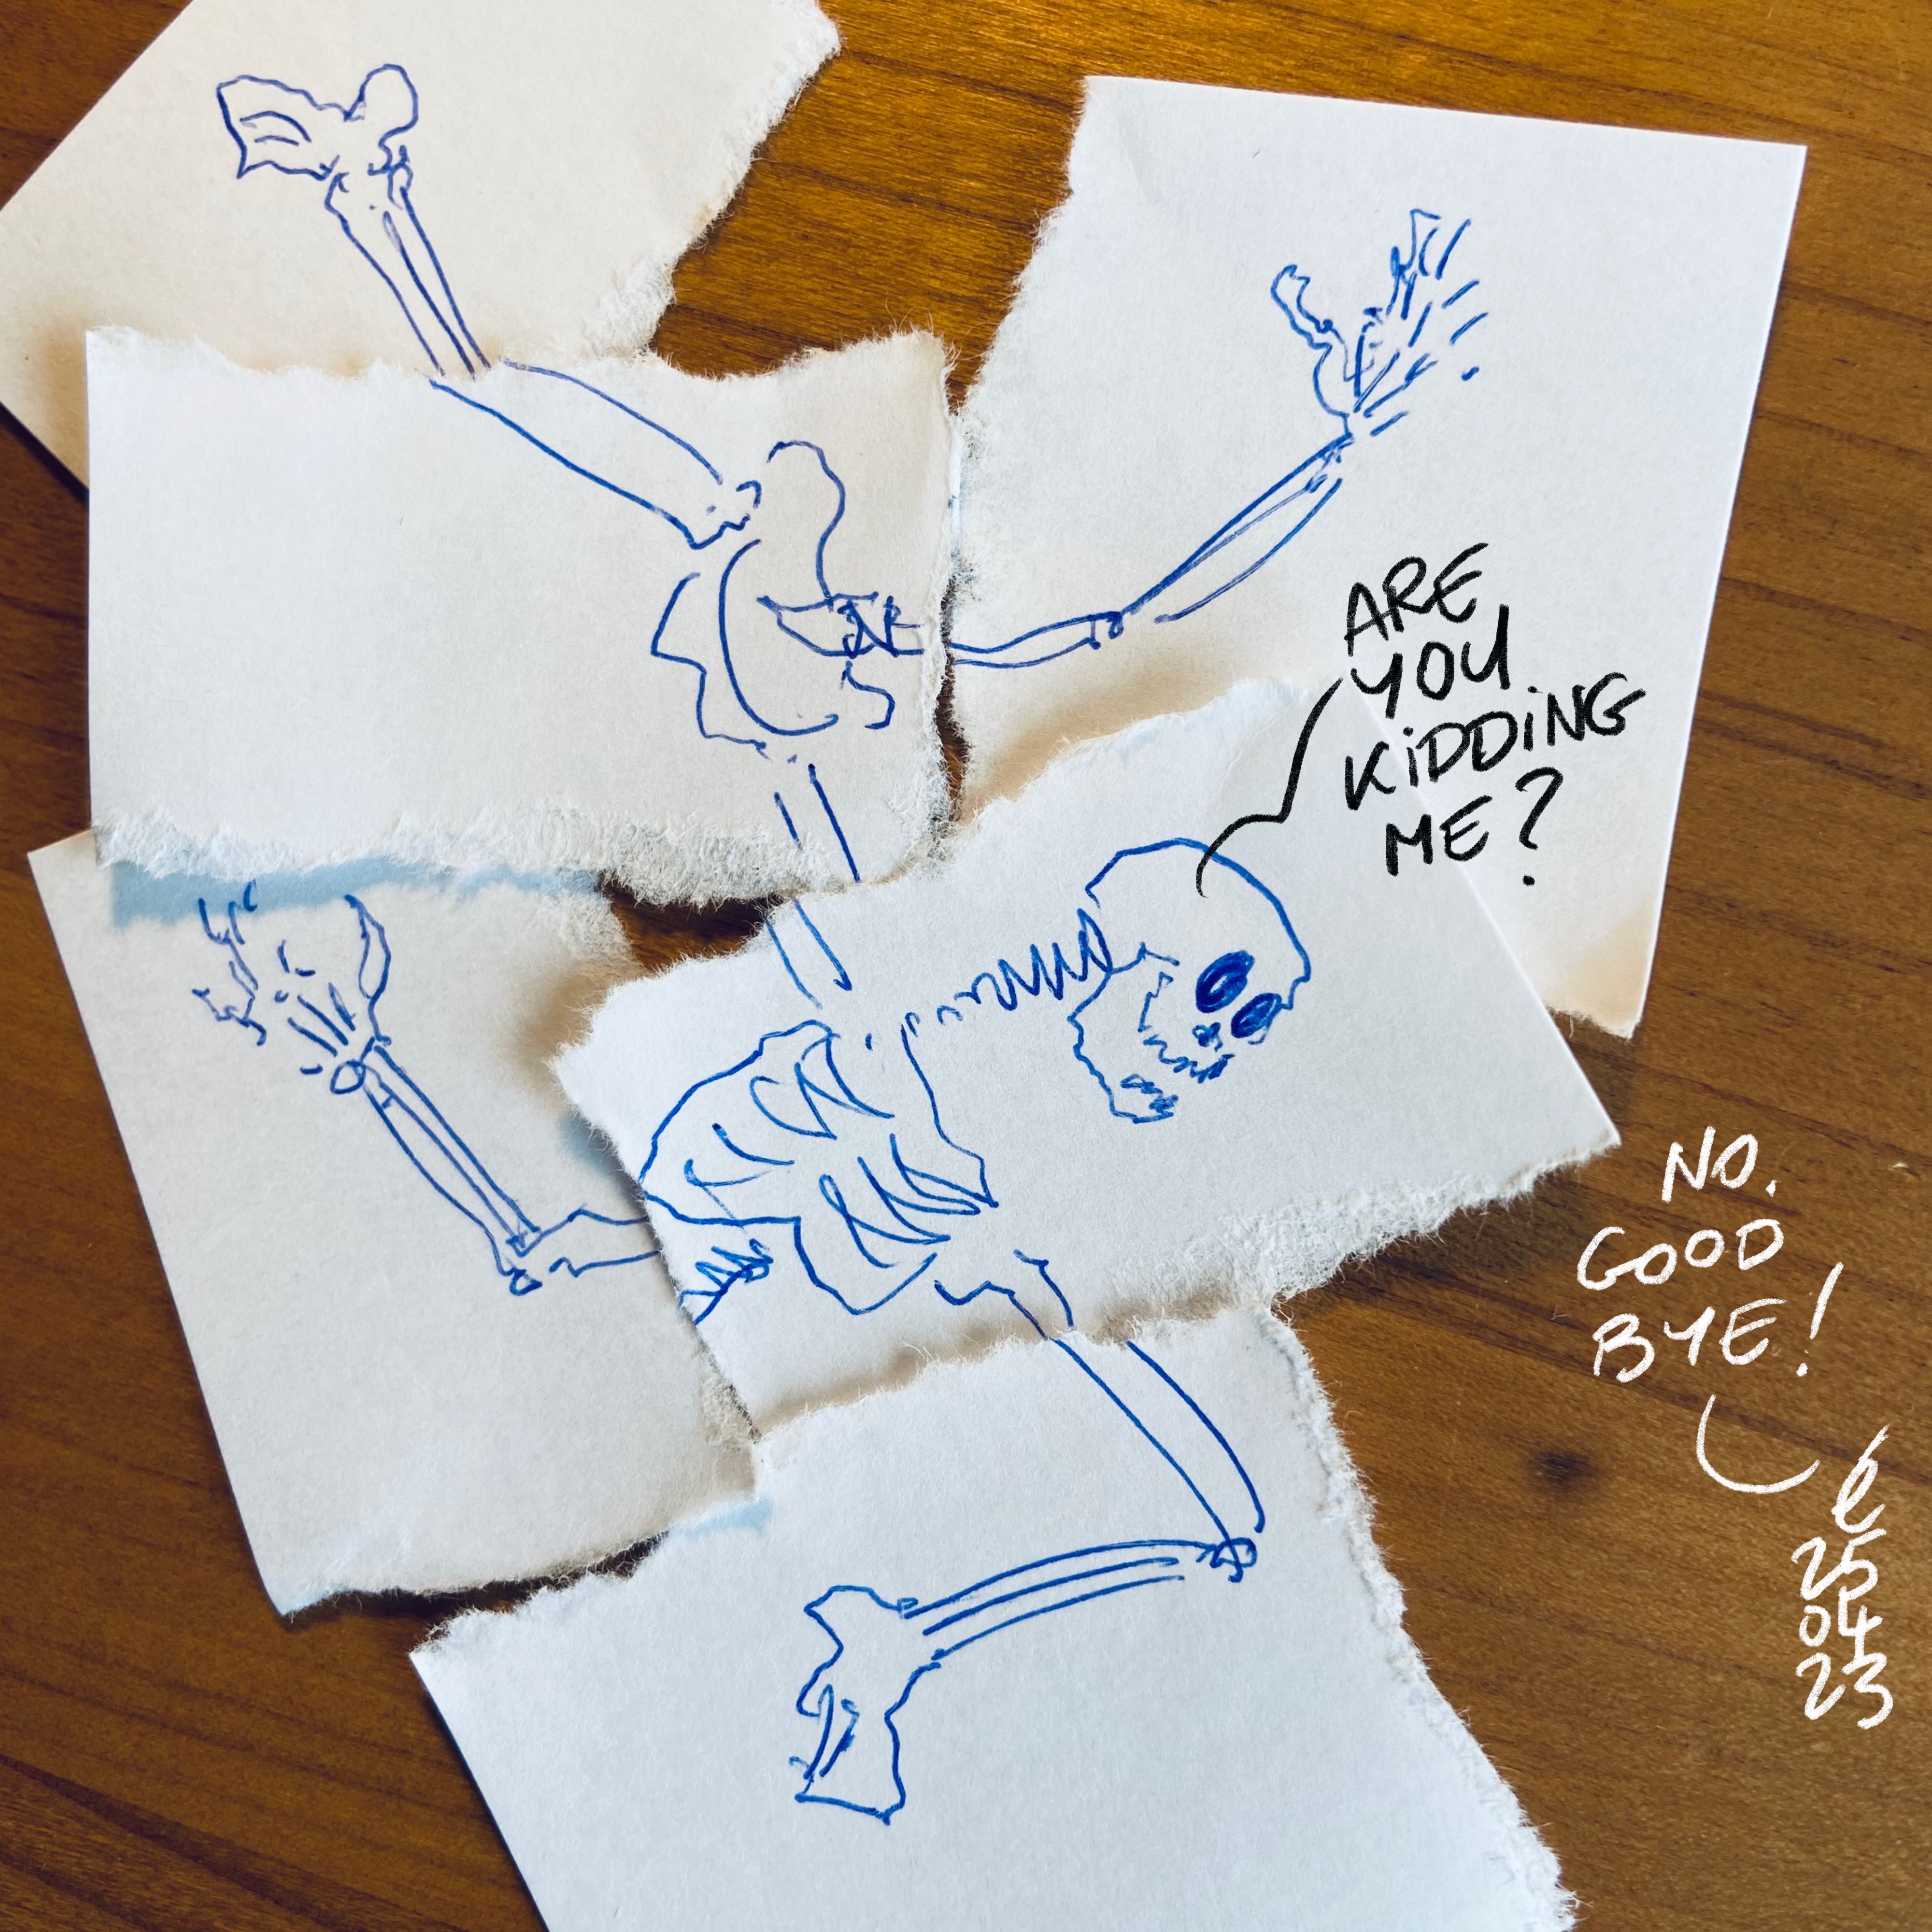 ARE
YOU
KiDDiNG
ME?
NO.
GOOD
BYE!
25
04
23